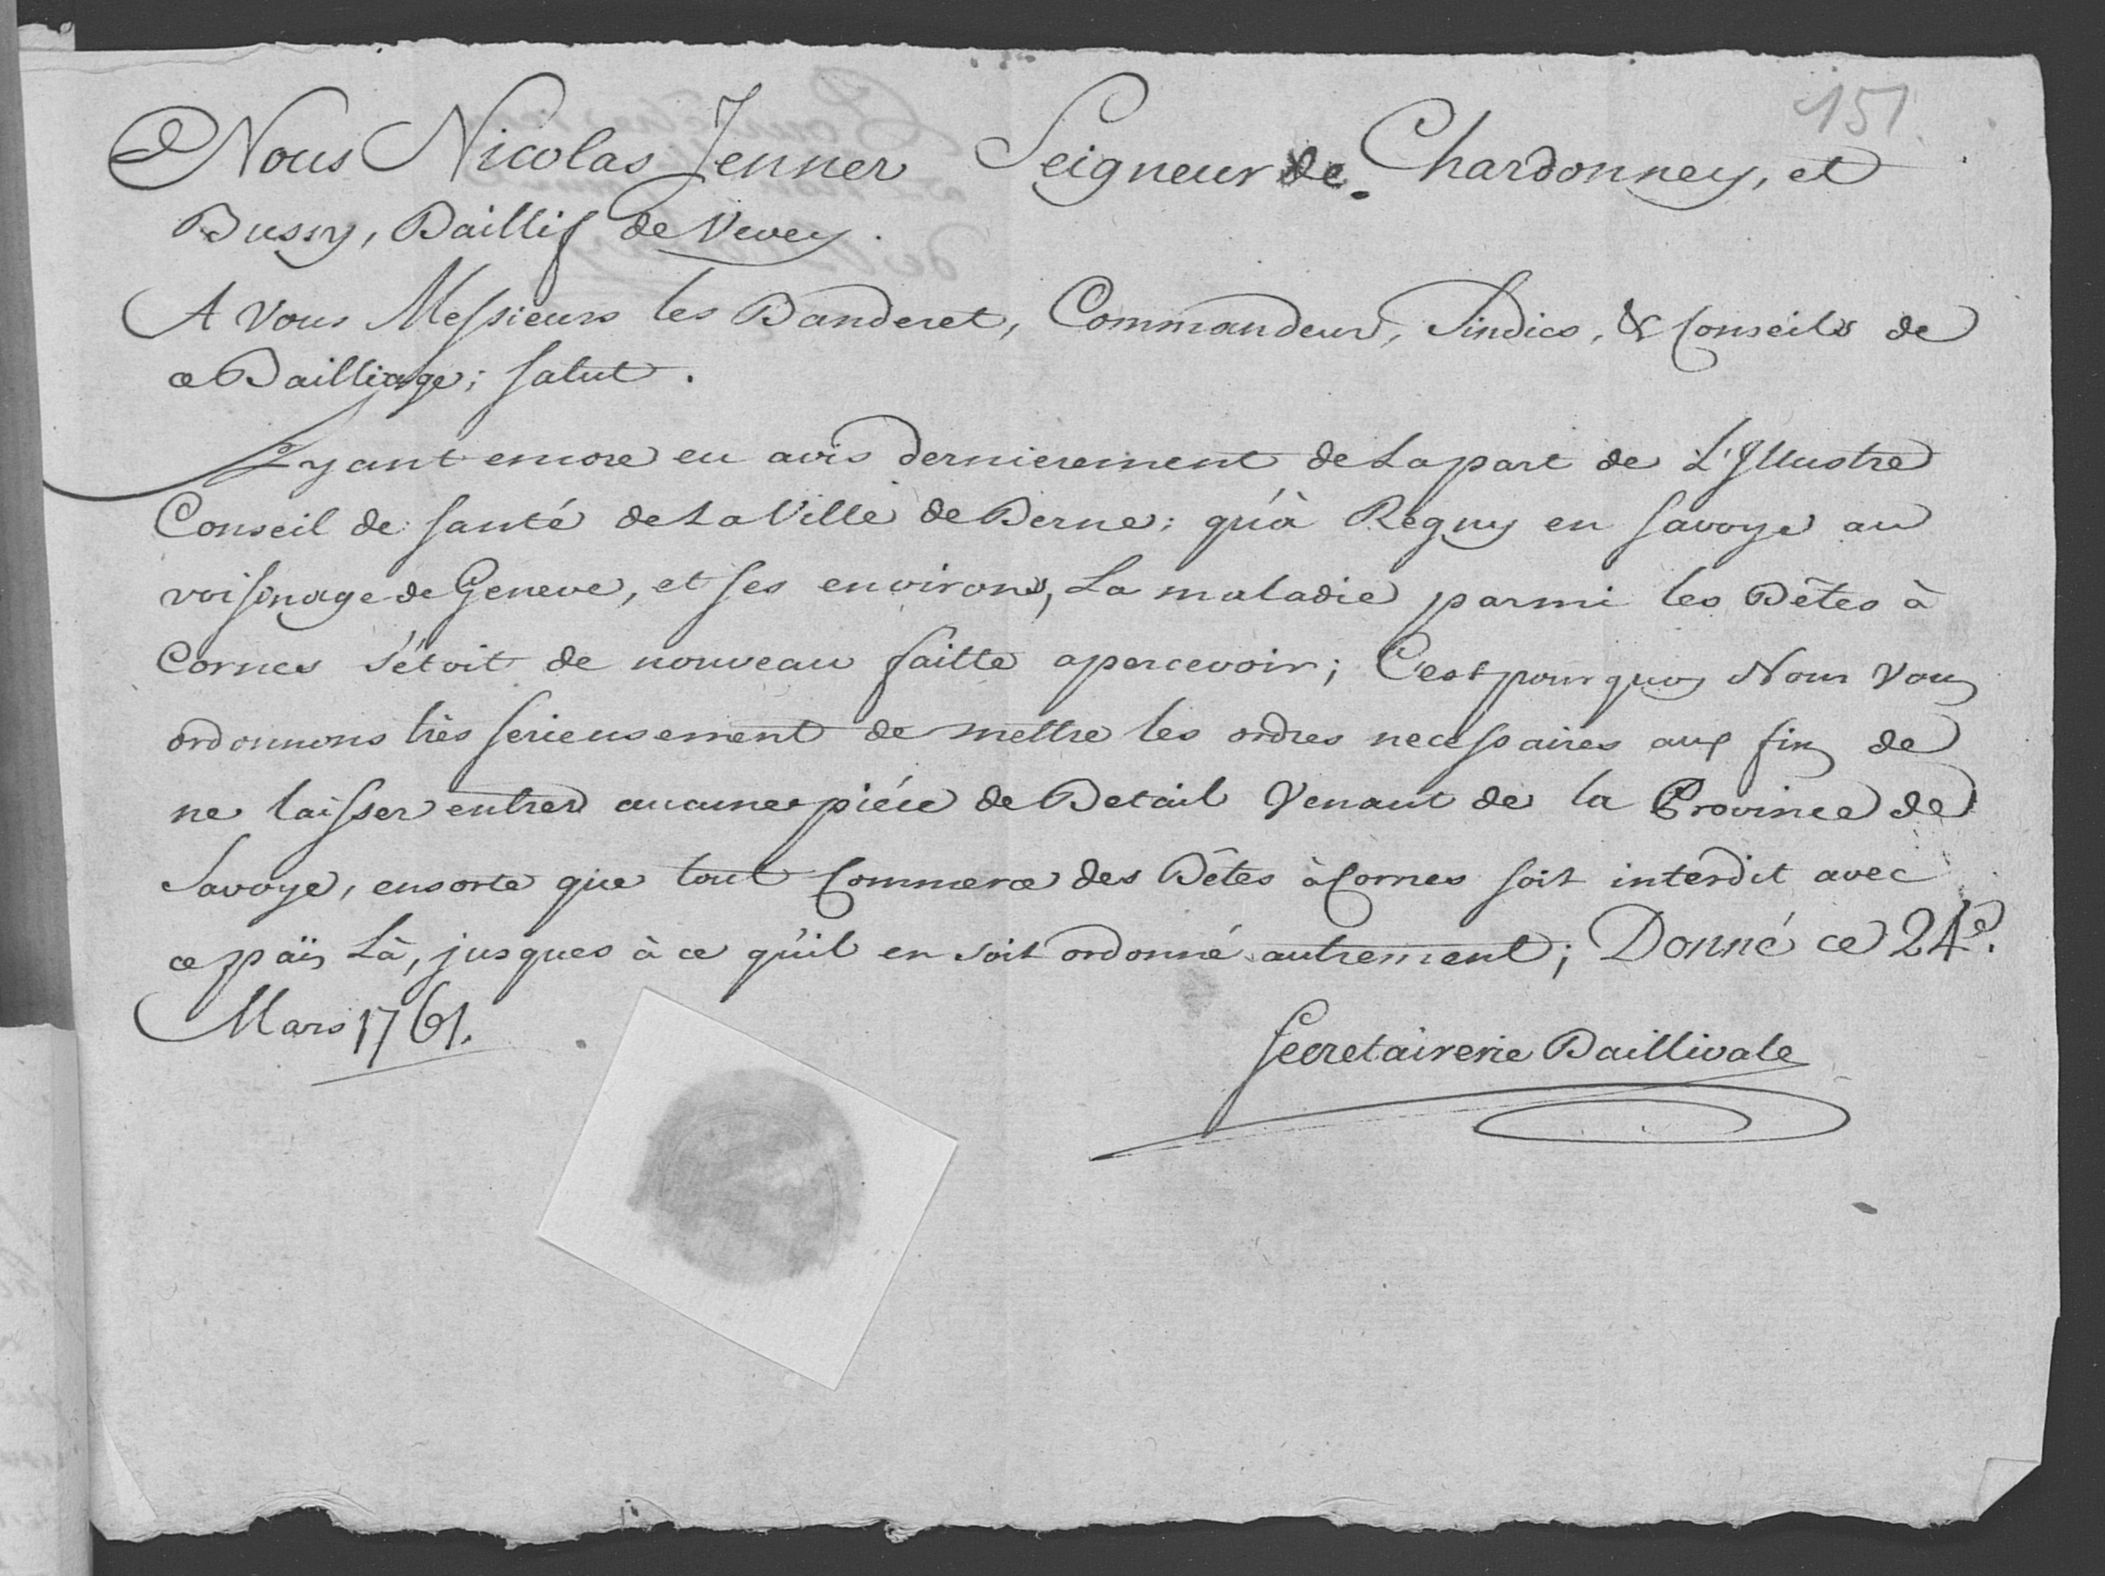 151.
Nous Nicolas Jenner Seigneur de Chardonney, et
Bussy, Baillif de Vevey.
A Vous Messieurs les Banderet, Commandeur, Sindics, & Conseils de
ce Bailliage; salut.
Ayant encore eu avis dernierement de La part de L'Illustre
Conseil de santé de La Ville de Berne; qu'à Regny en Savoye au
voisinage de Geneve, et ses environs, La maladie parmi les Bêtes à
Cornes s'étoit de nouveau faitte apercevoir; C'est pourquoy Nous Vous
ordonnons très serieusement de mettre les ordres necessaires aux fins de
ne laisser entrer aucune piéce de Betail Venant de la Province de
Savoye, ensorte que tout Commerce des Bêtes à Cornes soit interdit avec
ce païs Là, jusques à ce qu'il en soit ordonné autrement; Donné ce 24e.
Mars 1761.
Secretairerie Baillivale